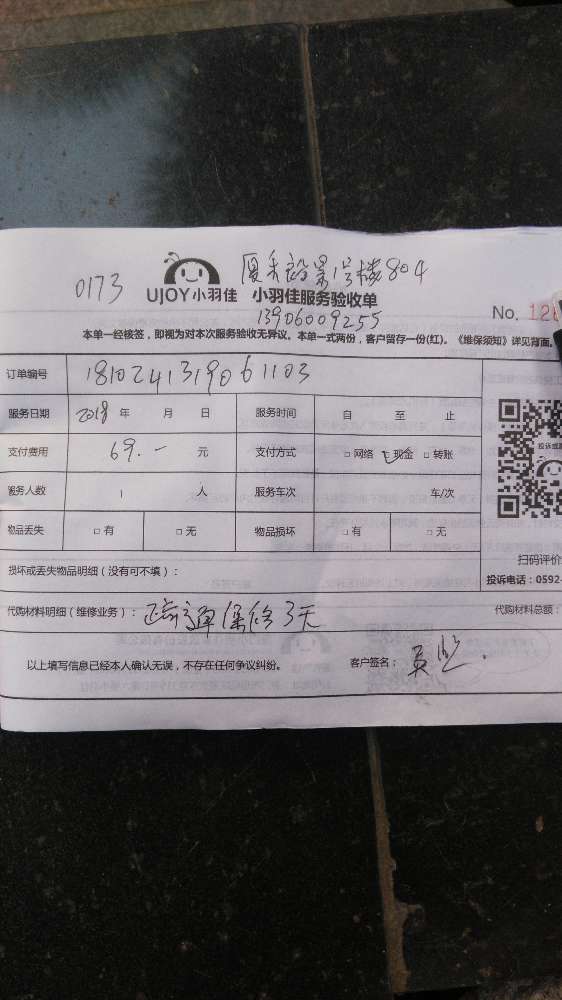 0173
1号楼804
UJOY小羽佳 小羽佳服务验收单
13906009255
No. 128
本单一经接签，即视为对本次服务验收无异议。本单一式两份，客户留存一份(红)。《维保须知》详见背面。
订单编号 1810241319061103
服务日期 2018 年 月 日 服务时间 自 至 止
支付费用 69.— 元 支付方式 □网络 □现金 □转账
服务人数 1 人 服务车次 车/次
物品丢失 □有 □无 物品损坏 □有 □无
扫码评价
损坏或丢失物品明细（没有可不填）：
投诉电话：0592-
代购材料明细（维修业务）： 疏通保修3天 代购材料总额：
以上填写信息已经本人确认无误，不存在任何争议纠纷。 客户签名：